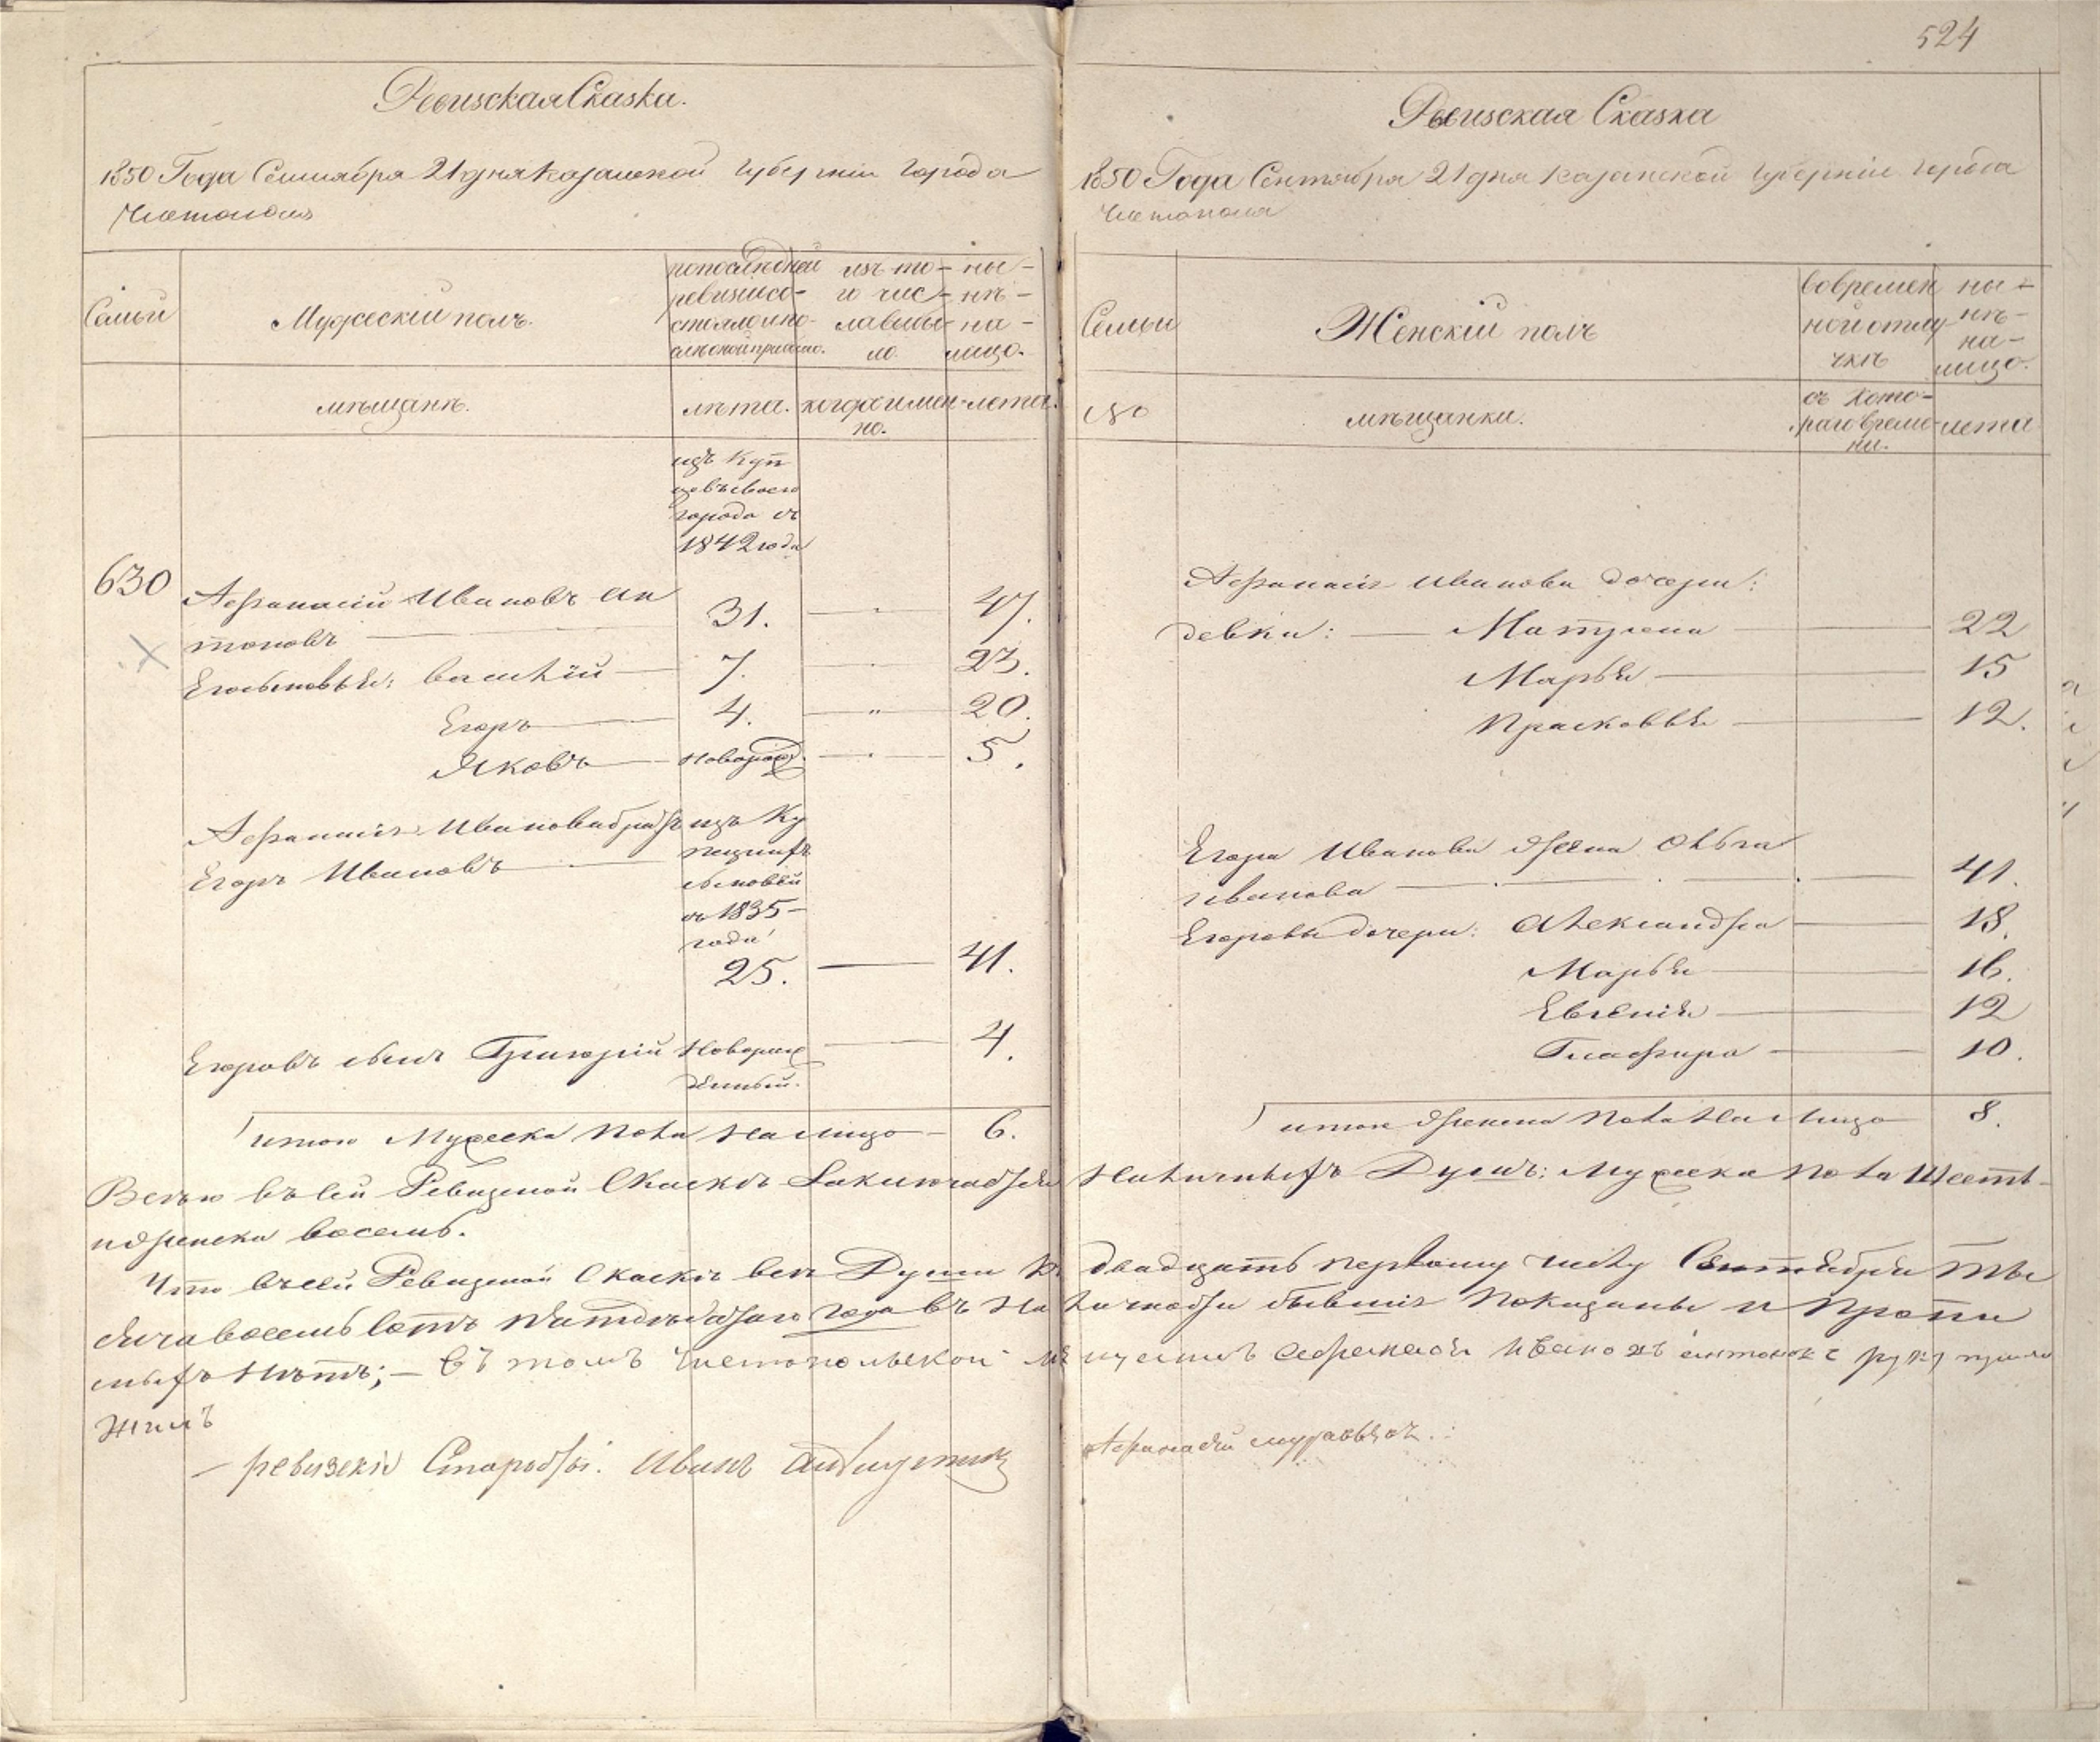 524
Ревизская Сказка.
1850 Года Сентября 21 дня Казанской Губернии Города
Чистополя
Семьи
Мужеский полъ.
по последней ревизии состояло и после оной прибыло.
изъ того числа выбыло.
ныне на лицо.
мѣщанъ.
лѣта.
когда именно.
лета.
изъ Куп
цовъ своего
города съ
1842 года
630
Афанасий Ивановъ Ан
тоновъ 31. 47.
Его сыновья: Василий 7. 23.
Егоръ 4. 20.
Яковъ Новорожд. 5.
Афанасия Иванова братъ изъ Ку
Егоръ Ивановъ
печескихъ
сыновей
съ 1835
года
25. 41.
Егоровъ сынъ Григорий Новорож
денный. 4.
итого Мужеска Пола На Лицо 6.
Ревизская Сказка
1850 Года Сентября 21 дня Казанской Губернии Города
Чистополя
Семьи
Женский полъ
во временной отлучкѣ
ныне на лицо.
№
мѣщанки.
съ которого времени.
лета
Афанасия Иванова дочери:
девки: Матрена 22
Марья 15
Прасковья 12.
Егора Иванова жена Ольга
Иванова 41.
Егоровы дочери: Александра 18.
Марья 16.
Евгения 12
Глафира 10.
итого женска Пола На Лицо 8.
Всего въ сей Ревизской Сказкѣ Заключается Наличныхъ Душъ: Мужеска Пола Шесть
и женска восемь.
Что въ сей Ревизской Сказкѣ все Души къ двадцать первому числу Сентября ты
сяча восемь сотъ пятидесятаго года въ Наличности бывшия показаны и Пропи
сныхъ Нѣтъ; — въ томъ чистопольской мещанинъ Афанасей Ивановъ Антоновъ руку прило
жилъ
ревизский Староста. Иванъ
Афанасий